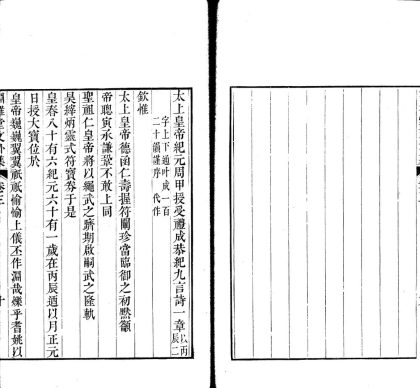 太上皇帝紀元周甲授受禮成恭紀九言詩一章以丙辰二
字上下通叶成一百
二十韻謹序 代作
欽惟
太上皇帝德函仁壽握符闡珍當臨御之初黙籲
帝聰寅承謙鞏不敢上同
聖祖仁皇帝將以繩武之躋期啟嗣武之隆軌
昊縡炳靈式符寶劵于是
皇春八十有六紀元六十有一歲在丙辰逎以月正元
日授大寶位於
皇帝巍巍翼翼祇祇愉愉上儀丕作淵哉爍乎耆姚以
雅堂文外集 卷三 十